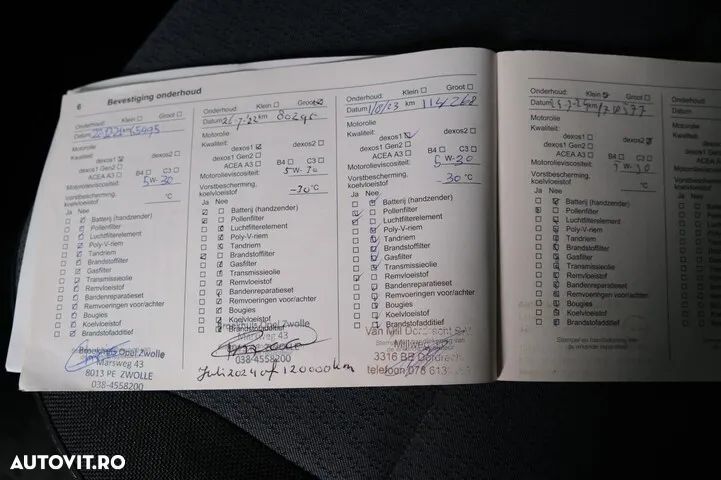 6 Bevestiging onderhoud
Onderhoud: Klein Groot
Datum km
Motorolie
Kwaliteit:
dexos1 dexos2
dexos1 Gen2
ACEA A3 B4 C3
Motorolieviscositeit:
5 W-30
Vorstbescherming,
koelvloeistof °C
Ja Nee
Batterij (handzender)
Pollenfilter
Luchtfilterelement
Poly-V-riem
Tandriem
Brandstoffilter
Gasfilter
Transmissieolie
Remvloeistof
Bandenreparatieset
Remvoeringen voor/achter
Bougies
Koelvloeistof
Brandstofadditief
Broekhuis Opel Zwolle
Marsweg 43
8013 PE ZWOLLE
038-4558200
Onderhoud: Klein Groot
Datum km
Motorolie
Kwaliteit:
dexos1 dexos2
dexos1 Gen2
ACEA A3 B4 C3
Motorolieviscositeit:
5W-30
Vorstbescherming,
koelvloeistof -30 °C
Ja Nee
Batterij (handzender)
Pollenfilter
Luchtfilterelement
Poly-V-riem
Tandriem
Brandstoffilter
Gasfilter
Transmissieolie
Remvloeistof
Bandenreparatieset
Remvoeringen voor/achter
Bougies
Koelvloeistof
Brandstofadditief
Broekhuis Opel Zwolle
Marsweg 43
038-4558200
Juli 2024 of 120000km
Onderhoud: Klein Groot
Datum 1/8/23 km 114268
Motorolie
Kwaliteit:
dexos1 dexos2
dexos1 Gen2
ACEA A3 B4 C3
Motorolieviscositeit:
5 W-30
Vorstbescherming,
koelvloeistof 30 °C
Ja Nee
Batterij (handzender)
Pollenfilter
Luchtfilterelement
Poly-V-riem
Tandriem
Brandstoffilter
Gasfilter
Transmissieolie
Remvloeistof
Bandenreparatieset
Remvoeringen voor/achter
Bougies
Koelvloeistof
Brandstofadditief
Van Mill
3316 BB Dordrecht
telefoon 078 613
Onderhoud: Klein Groot
Datum km
Motorolie
Kwaliteit:
dexos1 dexos2
dexos1 Gen2
ACEA A3 B4 C3
Motorolieviscositeit:
Vorstbescherming,
koelvloeistof °C
Ja Nee
Batterij (handzender)
Pollenfilter
Luchtfilterelement
Poly-V-riem
Tandriem
Brandstoffilter
Gasfilter
Transmissieolie
Remvloeistof
Bandenreparatieset
Remvoeringen voor/achter
Bougies
Koelvloeistof
Brandstofadditief
AUTOVIT.RO